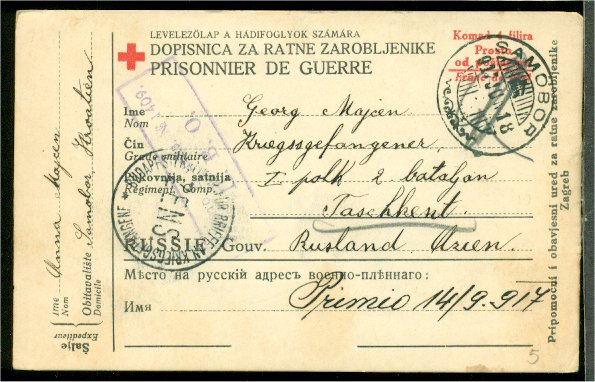 LEVELEZŐLAP A HÁDIFOGLYOK SZÁMÁRA
DOPISNICA ZA RATNE ZAROBLJENIKE
PRISONNIER DE GUERRE
Prosto
Ime
Nom
Georg Majcen
Čin
Grade militaire
Kriegsgefangener
Pukovnija, satnija
Régiment, Comp.
I polk 2 bataljon
Taschkent.
RUSSIE Gouv. Rusland Azien.
Мѣсто на русскій адресъ военно-плѣннаго:
Имя
Primio 14/9. 917
SAMOBOR
ZENS
Šalje
Expéditeur
Ime
Nom
Anna Majcen
Obitavalište
Domicile
Samobor Kroatien
Pripomoćni i obavjesni ured za ratne zarobljenike
Zagreb
5